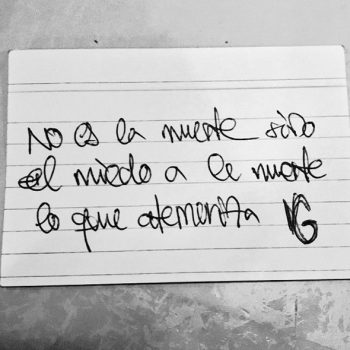 No es la muerte sino
el miedo a la muerte
lo que atemoriza VG